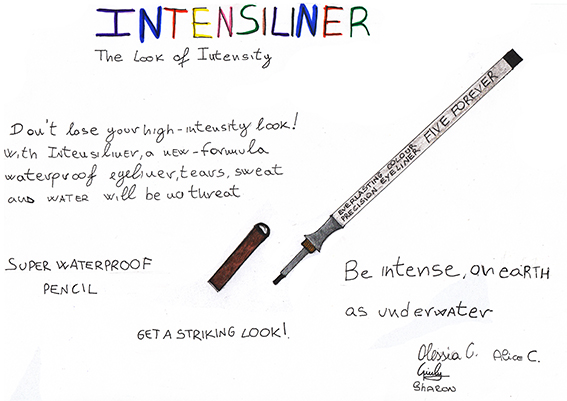 INTENSILINER
The Look of Intensity
Don't lose your high-intensity look!
With Intensiliner, a new-formula
waterproof eyeliner, tears, sweat
and water will be no threat
EVERLASTING COLOUR
PRECISION EYELINER FIVE FOREVER
SUPER WATERPROOF
PENCIL
GET A STRIKING LOOK!
Be intense, on EARTH
as underwater
Alessia C. Alice C.
Giuly
Sharon